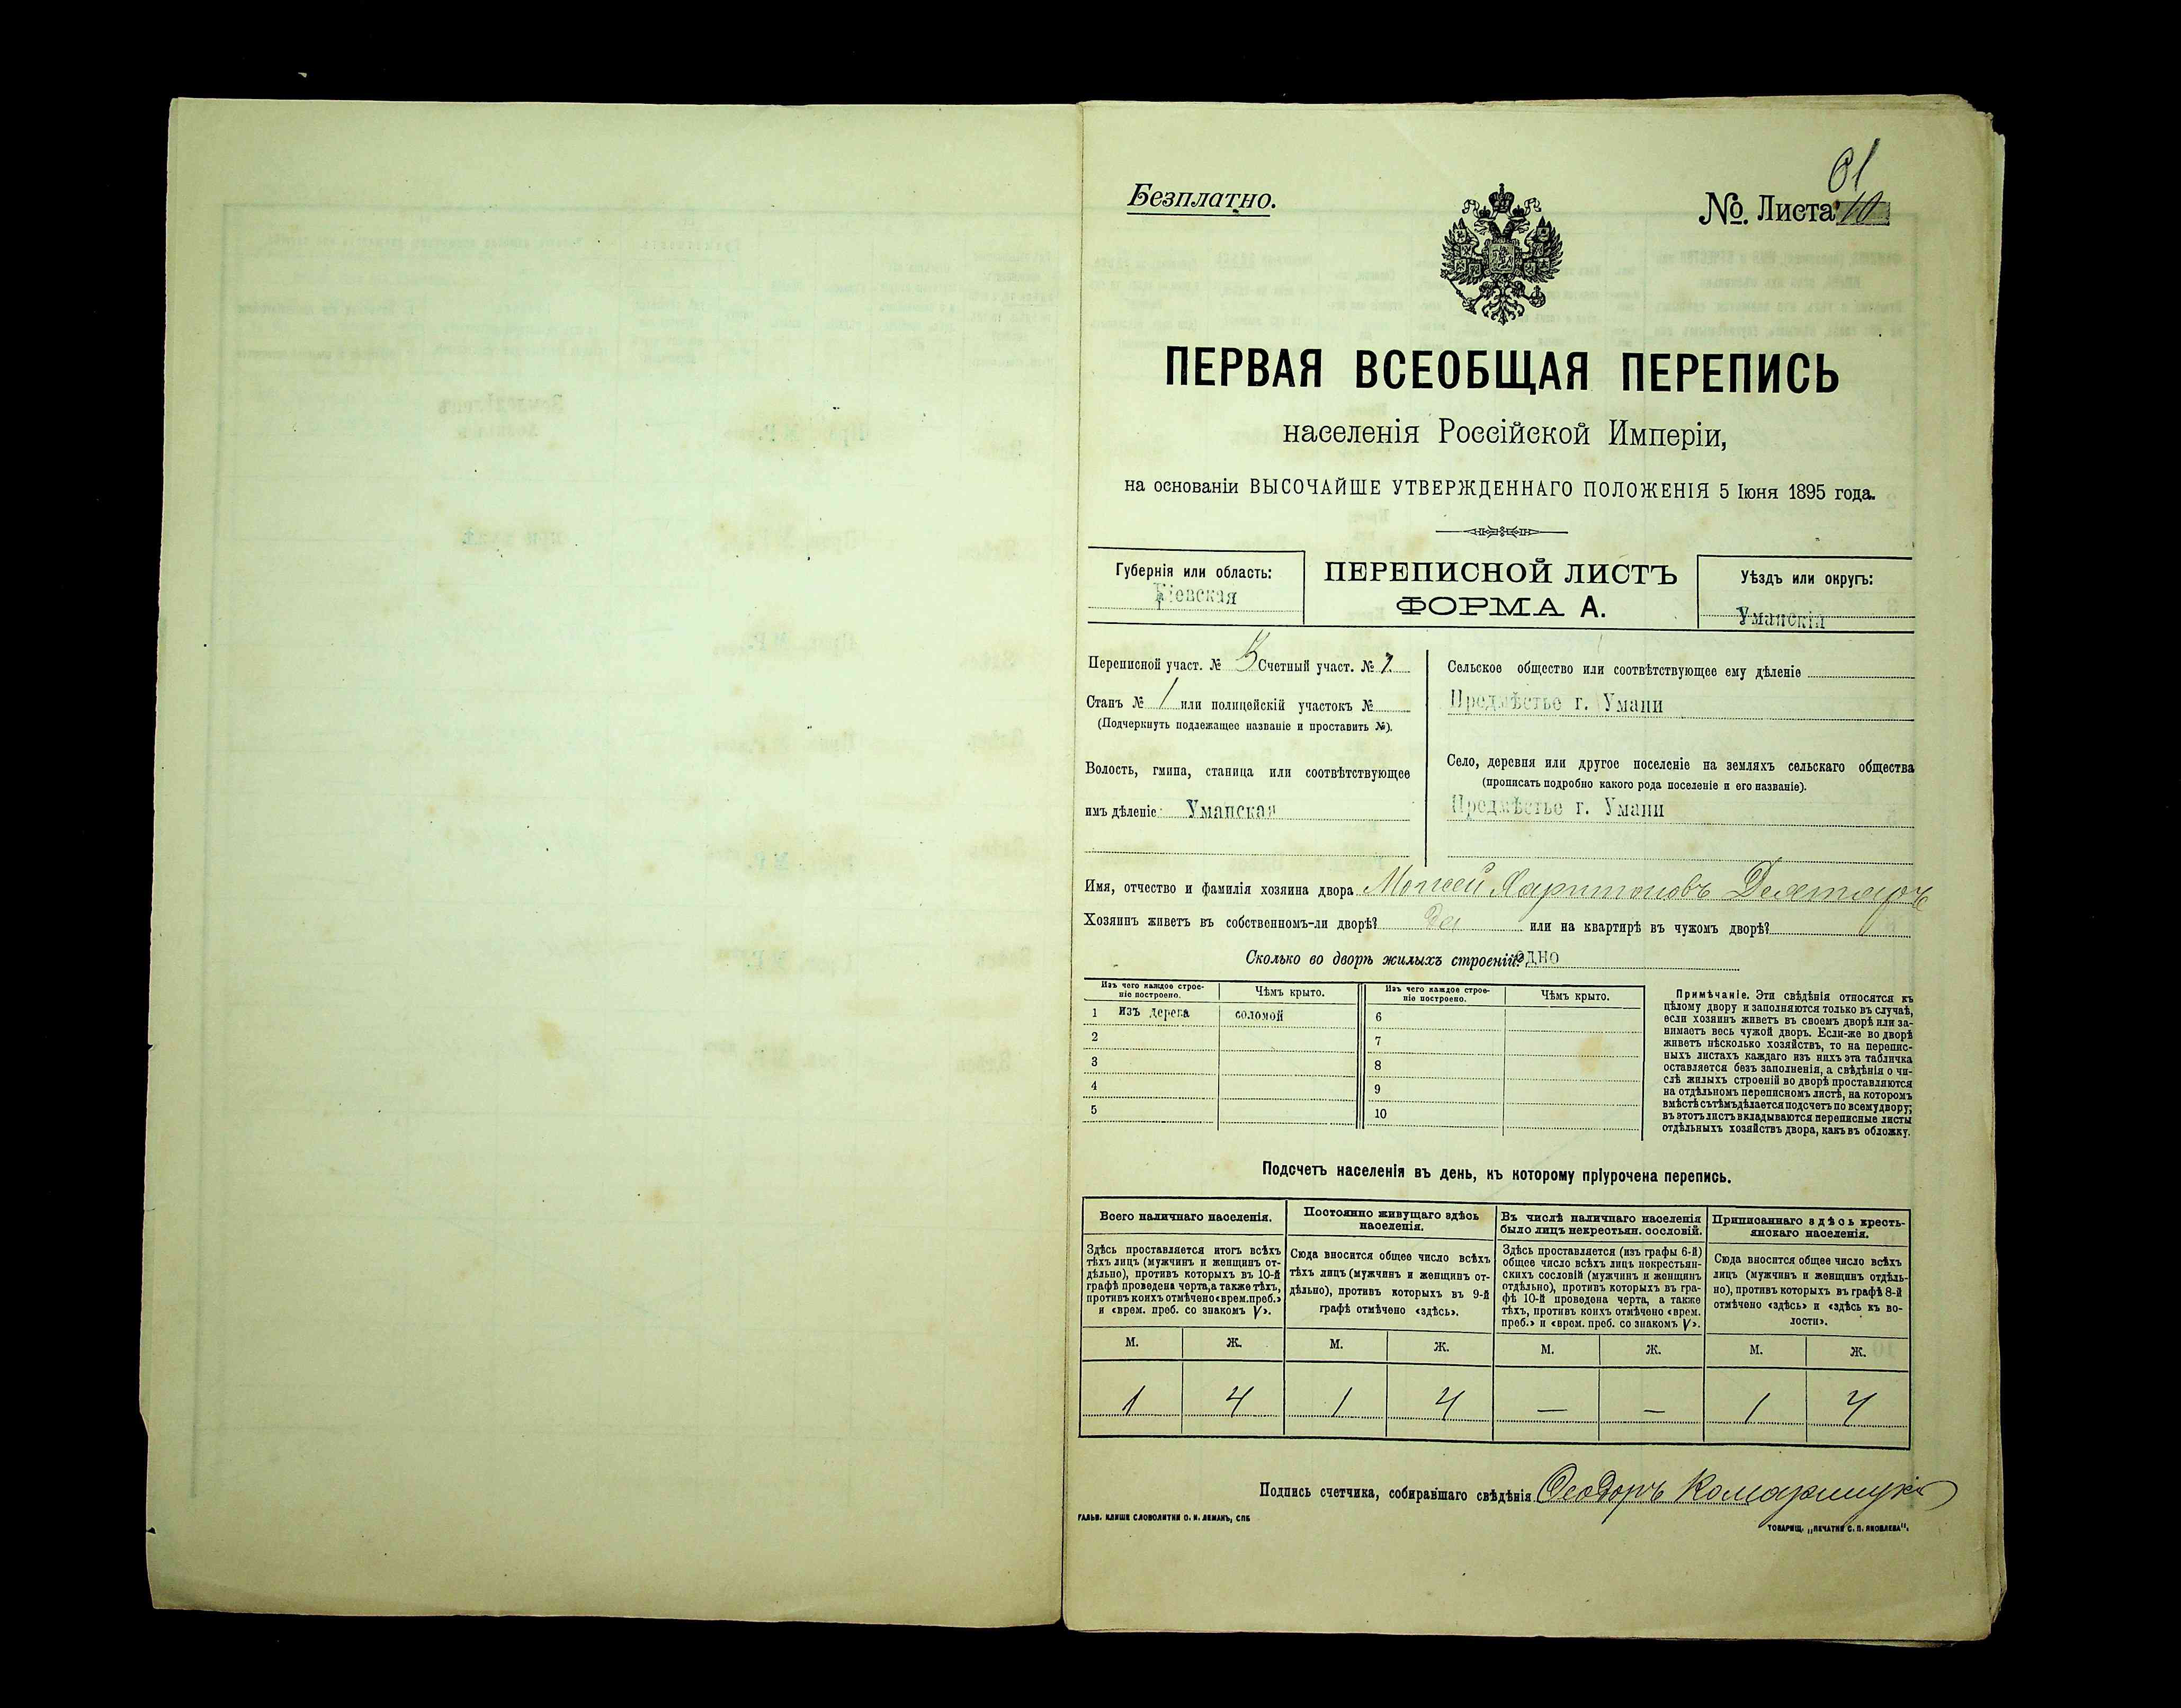 Безплатно.
№. Листа 10
61
ПЕРВАЯ ВСЕОБЩАЯ ПЕРЕПИСЬ
населенія Россійской Имперіи,
на основаніи ВЫСОЧАЙШЕ УТВЕРЖДЕННАГО ПОЛОЖЕНІЯ 5 Іюня 1895 года.
Губернія или область:
Кіевская
ПЕРЕПИСНОЙ ЛИСТЪ
ФОРМА А.
Уѣздъ или округъ:
Уманскій
Переписной участ. № 3 Счетный участ. № 7
Станъ № 1 или полицейскій участокъ №
(Подчеркнуть подлежащее названіе и проставить №).
Волость, гмина, станица или соотвѣтствующее
имъ дѣленіе Уманская
Сельское общество или соотвѣтствующее ему дѣленіе
Предмѣстье г. Умани
Село, деревня или другое поселеніе на земляхъ сельскаго общества
(прописать подробно какого рода поселеніе и его названіе).
Предмѣстье г. Умани
Имя, отчество и фамилія хозяина двора Мойсей Харитоновъ
Хозяинъ живетъ въ собственномъ-ли дворѣ? да или на квартирѣ въ чужомъ дворѣ?
Сколько во дворѣ жилыхъ строеній? одно
Изъ чего каждое строе-
ніе построено.
Чѣмъ крыто.
Изъ чего каждое строе-
ніе построено.
Чѣмъ крыто.
1 изъ дерева соломой 6
2 7
3 8
4 9
5 10
Примѣчаніе. Эти свѣдѣнія относятся къ
цѣлому двору и заполняются только въ случаѣ,
если хозяинъ живетъ въ своемъ дворѣ или за-
нимаетъ весь чужой дворъ. Если-же во дворѣ
живетъ нѣсколько хозяйствъ, то на перепис-
ныхъ листахъ каждаго изъ нихъ эта табличка
оставляется безъ заполненія, а свѣдѣнія о чи-
слѣ жилыхъ строеній во дворѣ проставляются
на отдѣльномъ переписномъ листѣ, на которомъ
вмѣстѣ съ тѣмъ дѣлается подсчетъ по всему двору;
въ этотъ листъ вкладываются переписные листы
отдѣльныхъ хозяйствъ двора, какъ въ обложку.
Подсчетъ населенія въ день, къ которому пріурочена перепись.
Всего наличнаго населенія.
Здѣсь проставляется итогъ всѣхъ
тѣхъ лицъ (мужчинъ и женщинъ от-
дѣльно), противъ которыхъ въ 10-й
графѣ проведена черта, а также тѣхъ,
противъ коихъ отмѣчено «врем. преб.»
и «врем. преб. со знакомъ V».
Постоянно живущаго здѣсь
населенія.
Сюда вносится общее число всѣхъ
тѣхъ лицъ (мужчинъ и женщинъ от-
дѣльно), противъ которыхъ въ 9-й
графѣ отмѣчено «здѣсь».
Въ числѣ наличнаго населенія
было лицъ некрестьян. сословій.
Здѣсь проставляется (изъ графы 6-й)
общее число всѣхъ лицъ некрестьян-
скихъ сословій (мужчинъ и женщинъ
отдѣльно), противъ которыхъ въ гра-
фѣ 10-й проведена черта, а также
тѣхъ, противъ коихъ отмѣчено «врем.
преб.» и «врем. преб. со знакомъ V».
Приписаннаго здѣсь кресть-
янскаго населенія.
Сюда вносится общее число всѣхъ
лицъ (мужчинъ и женщинъ отдѣль-
но), противъ которыхъ въ графѣ 8-й
отмѣчено «здѣсь» и «здѣсь къ во-
лости».
М. Ж. М. Ж. М. Ж. М. Ж.
1 4 1 4 — — 1 4
Подпись счетчика, собиравшаго свѣдѣнія Ѳеодоръ
ГАЛЬВ. КЛИШЕ СЛОВОЛИТНИ О. И. ЛЕМАНЪ, СПБ
ТОВАРИЩ. „ПЕЧАТНЯ С. П. ЯКОВЛЕВА".